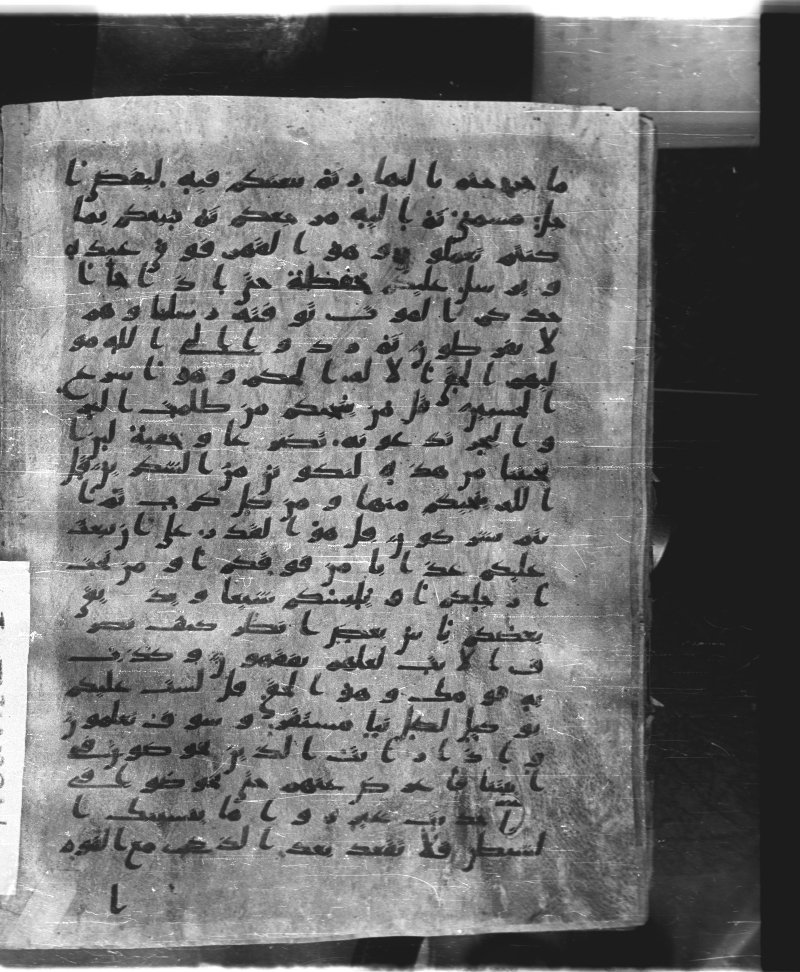 ما جرحتم بالنهار ثم يبعثكم فيه ليقضى ا
جل مسمى ثم إليه مرجعكم ثم ينبئكم بما
كنتم تعملون وهو القهر فوق عبده
و يرسل عليكم حفظة حتى إذا جا ا
حدكم الموت توفته رسلنا وهم
لا يفرطون ثم ردوا إلى الله مو
ليهم الحق ألا له الحكم وهو أسرع
الحسبين قل من ينجيكم من ظلمت البر
والبحر تدعونه تضرعا وخفية لئن ا
نجيتنا من هذه لنكونن من الشكرين قل
الله ينجيكم منها ومن كل كرب ثم ا
نتم تشركون قل هو القدر على أن يبعث
عليكم عذابا من فوقكم أو من تحت
ارجلكم أو يلبسكم شيعا ويذيق
بعضكم بأس بعض انظر كيف نصر
ف الايت لعلهم يفقهون وكذب
به قومك وهو الحق قل لست عليكم
بوكيل لكل نبا مستقر وسوف تعلمون
وإذا رأيت الذين يخوضون في
ايتنا فأعرض عنهم حتى يخوضوا في
حديث غيره وإما ينسينك ا
لشيطن فلا تقعد بعد الذكرى مع القوم
ا